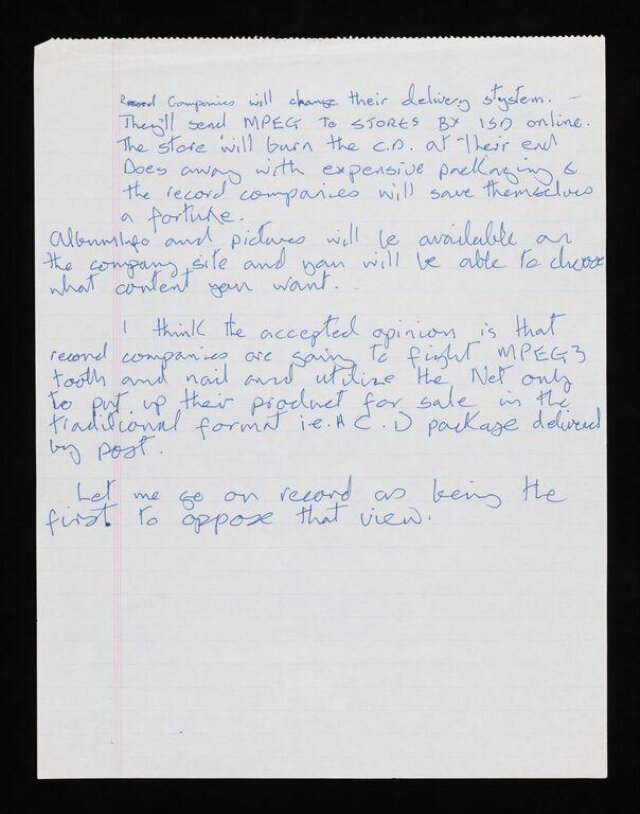 Record Companies will change their delivery stystem. –
They'll send MPEG TO STORES BY ISD online.
The store will burn the C.D. at their end
Does away with expensive packaging &
the record companies will save themselves
a fortune.
Album info and pictures will be available on
the company site and you will be able to choose
what content you want.
I think the accepted opinion is that
record companies are going to fight MPEG3
tooth and nail and utilize the Net only
to put up their product for sale in the
traditional format i.e. A C.D package delivered
by post.
Let me go on record as being the
first to oppose that view.